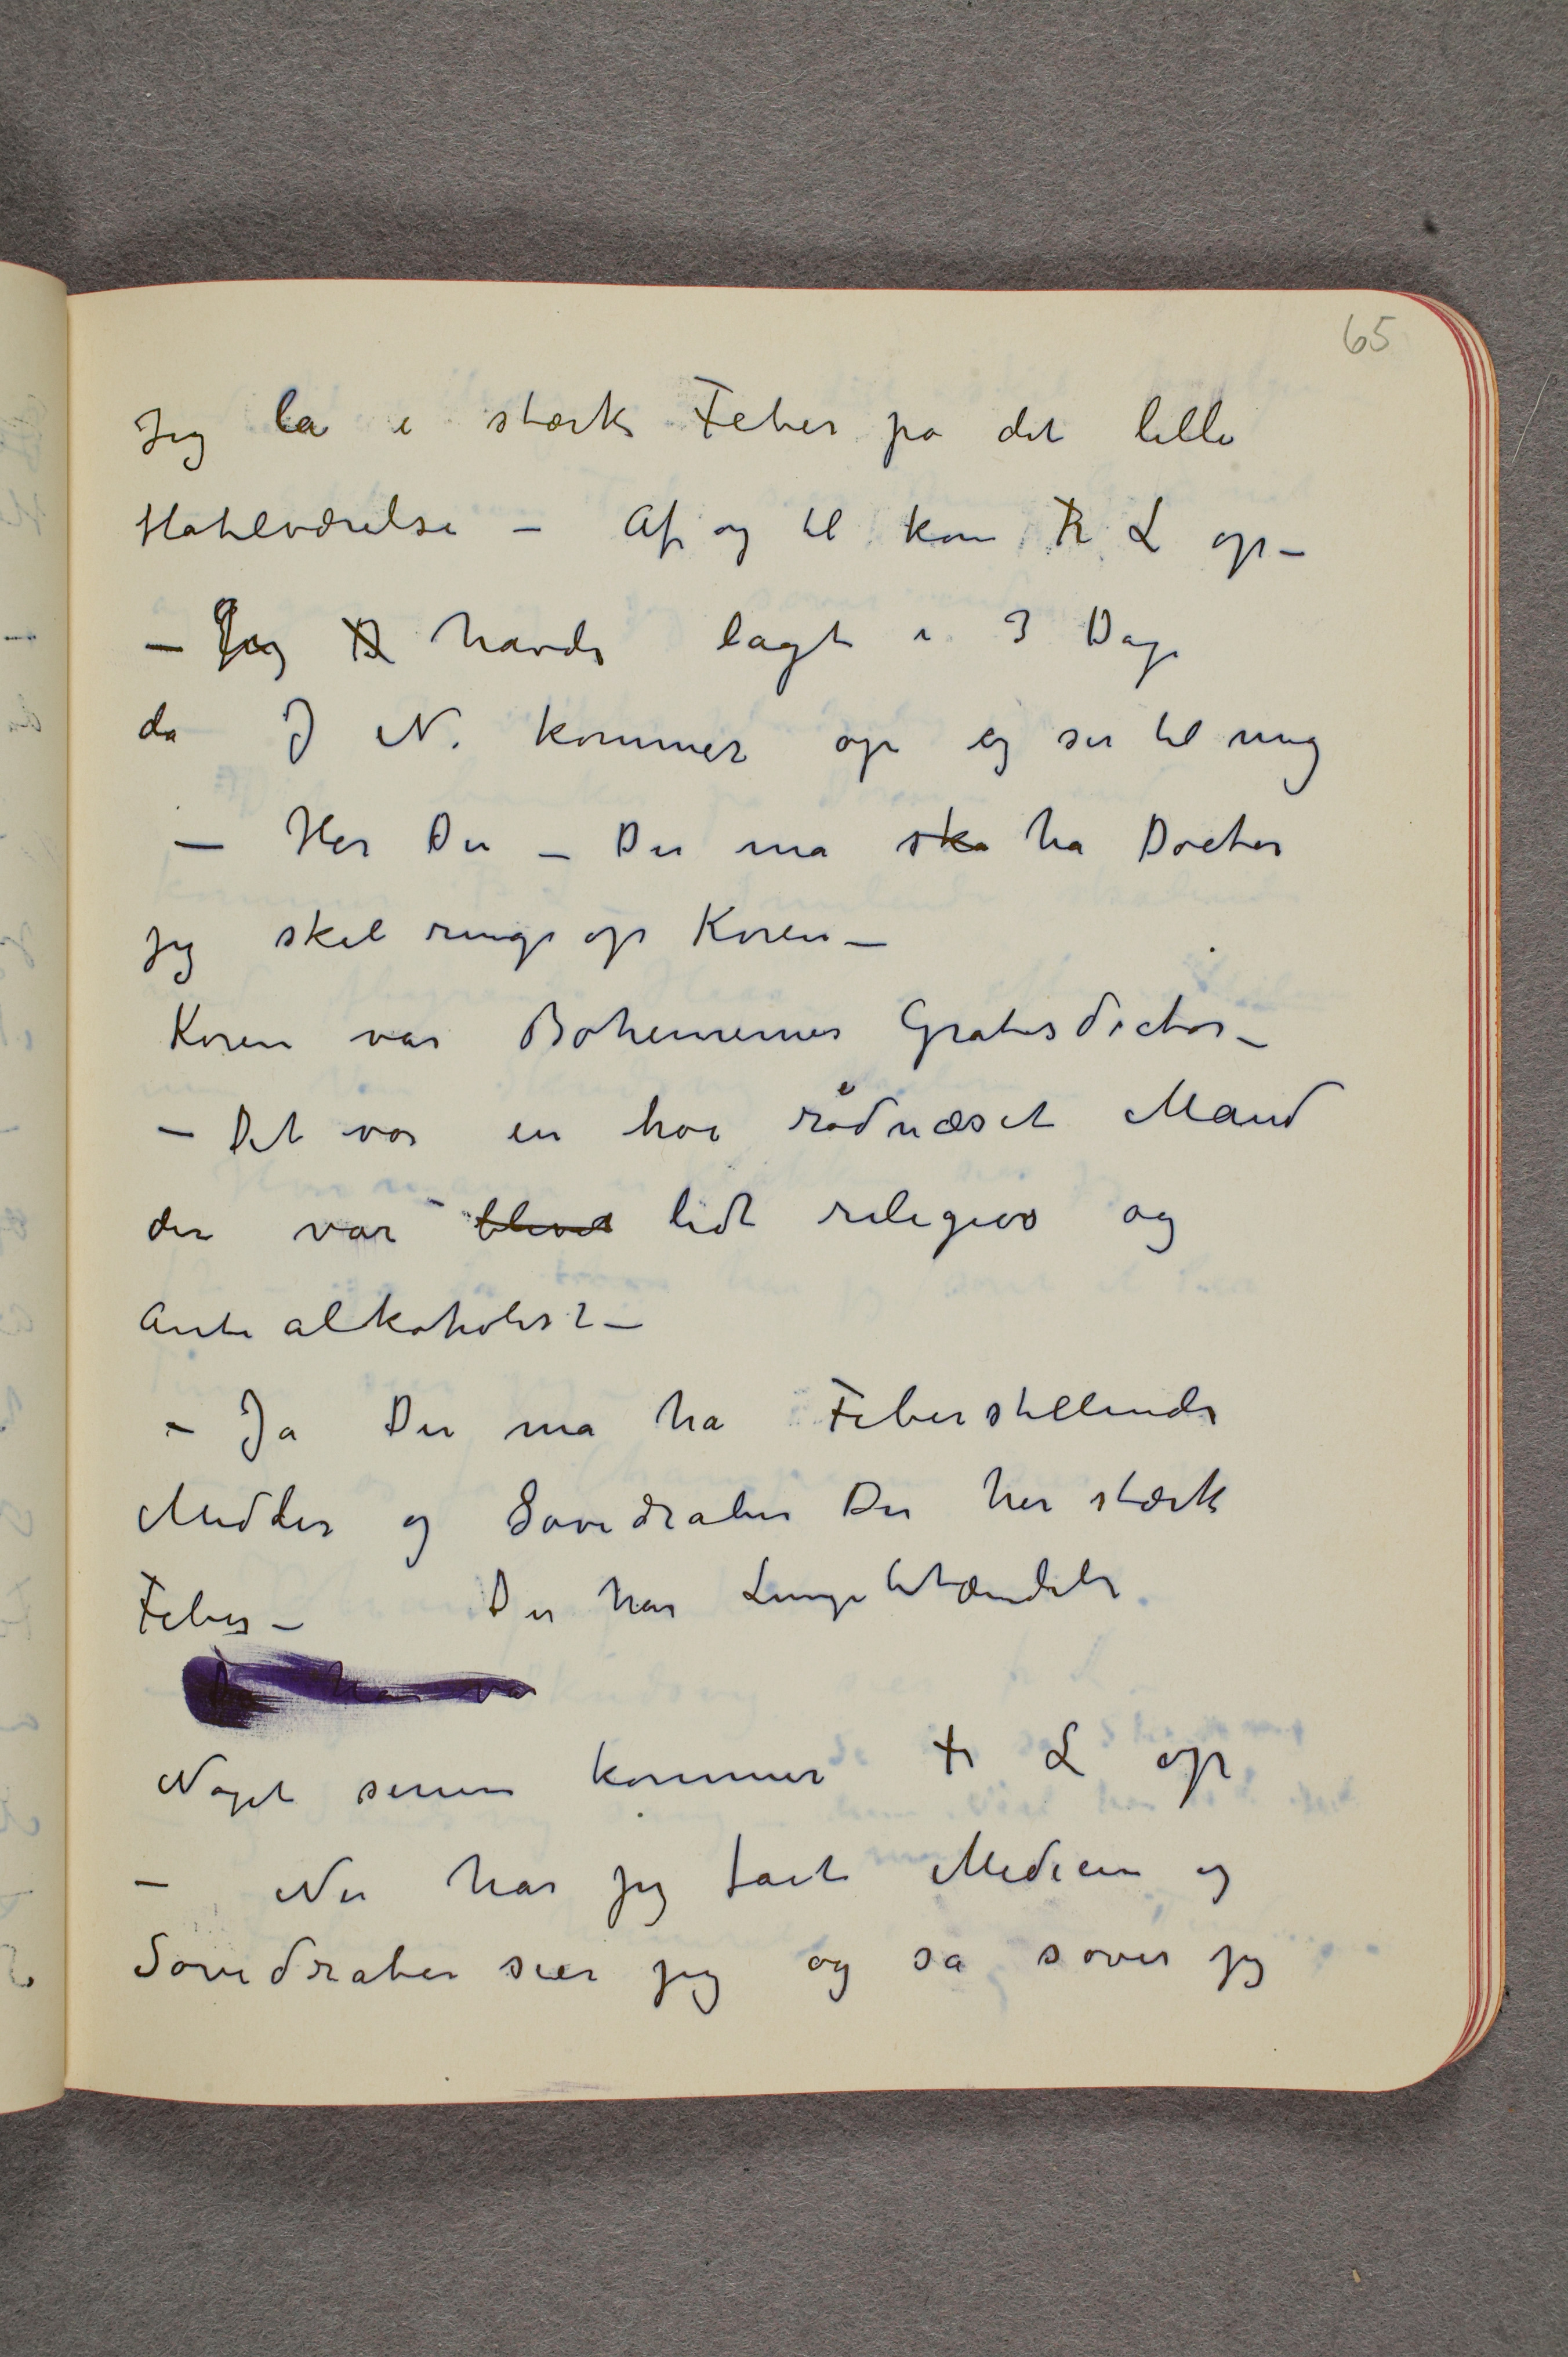 65
Jeg la i stærk Feber pa det lille
Hotelværelse – Af og til kom Fr L op –
– Jeg havde lagt i 3 Dage
da J N. kommer op og ser til mig
– Hør Du – Du ma ska ha Doctor
jeg skal ringe op Koren –
Koren var Bohemernes Gratisdoctor –
– Det var en høi rødnæset Mand
der var blevet lidt religiøs og
Antialkoholist –
– Ja Du ma ha Feberstillende
Midler og Sovedraber Du har stærk
Feber – Du har Lungebetændelse
har va
Noget senere kommer Fr L op
– Nu har jeg faet Medicin og
Sovedraber sier jeg og sa sover jeg